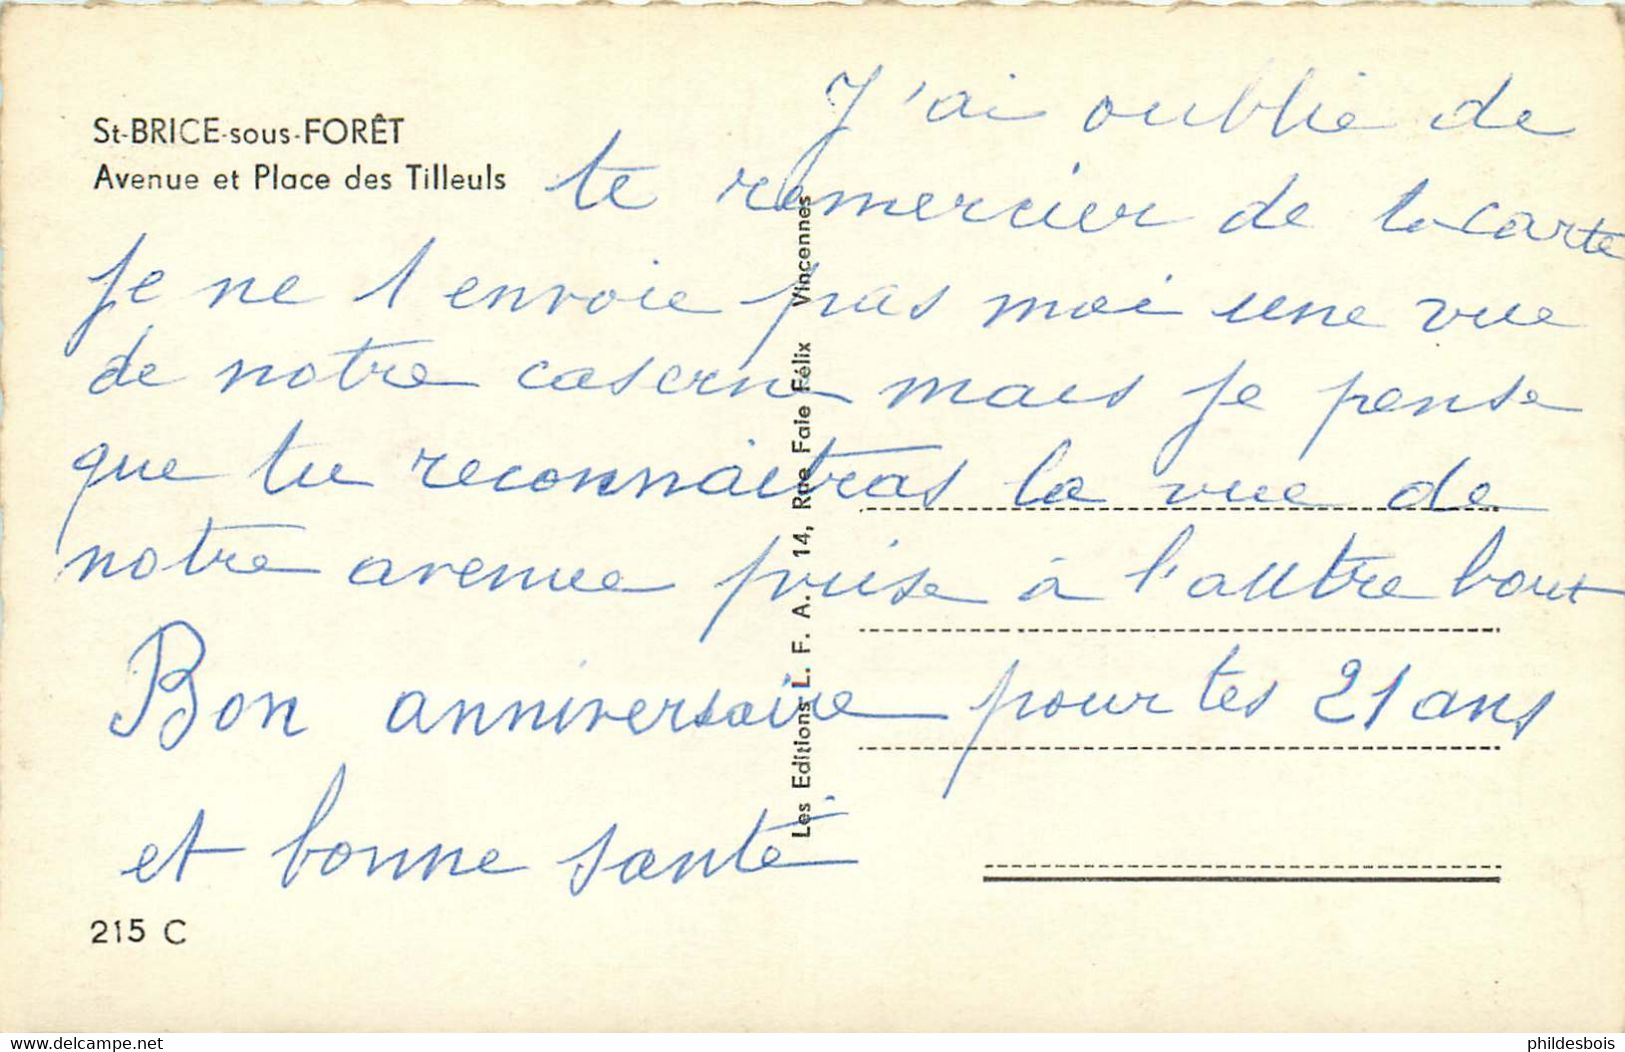 St-BRICE-sous-FORÊT
Avenue et Place des Tilleuls
J'ai oublié de
te remercier de la carte
Je ne t envoie pas moi une vue
de notre caserne mais je pense
que tu reconnaitras la vue de
notre avenue prise à l'autre bout
Bon anniversaire pour tes 21 ans
et bonne santé
Les Editions L. F. A. 14, Rue Faie Félix Vincennes
215 C
delcampe.net
phildesbois